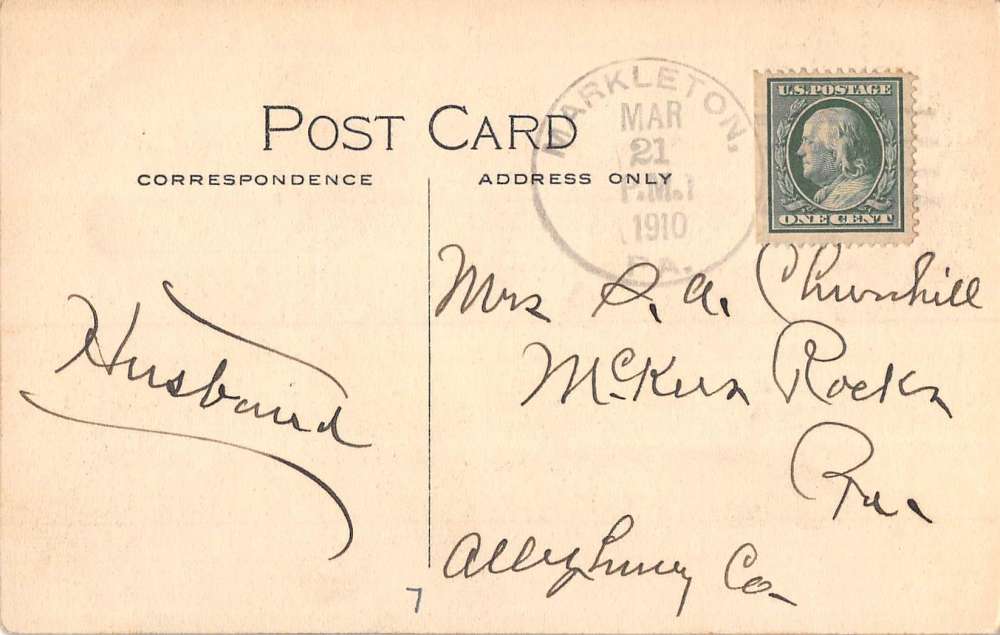 POST CARD
CORRESPONDENCE
ADDRESS ONLY
MARKLETON,
MAR
21
P.M.
1910
PA.
U.S. POSTAGE
ONE CENT
Mrs S. A. Churchill
McKees Rocks
Pa.
Allegheny Co.
Husband
7